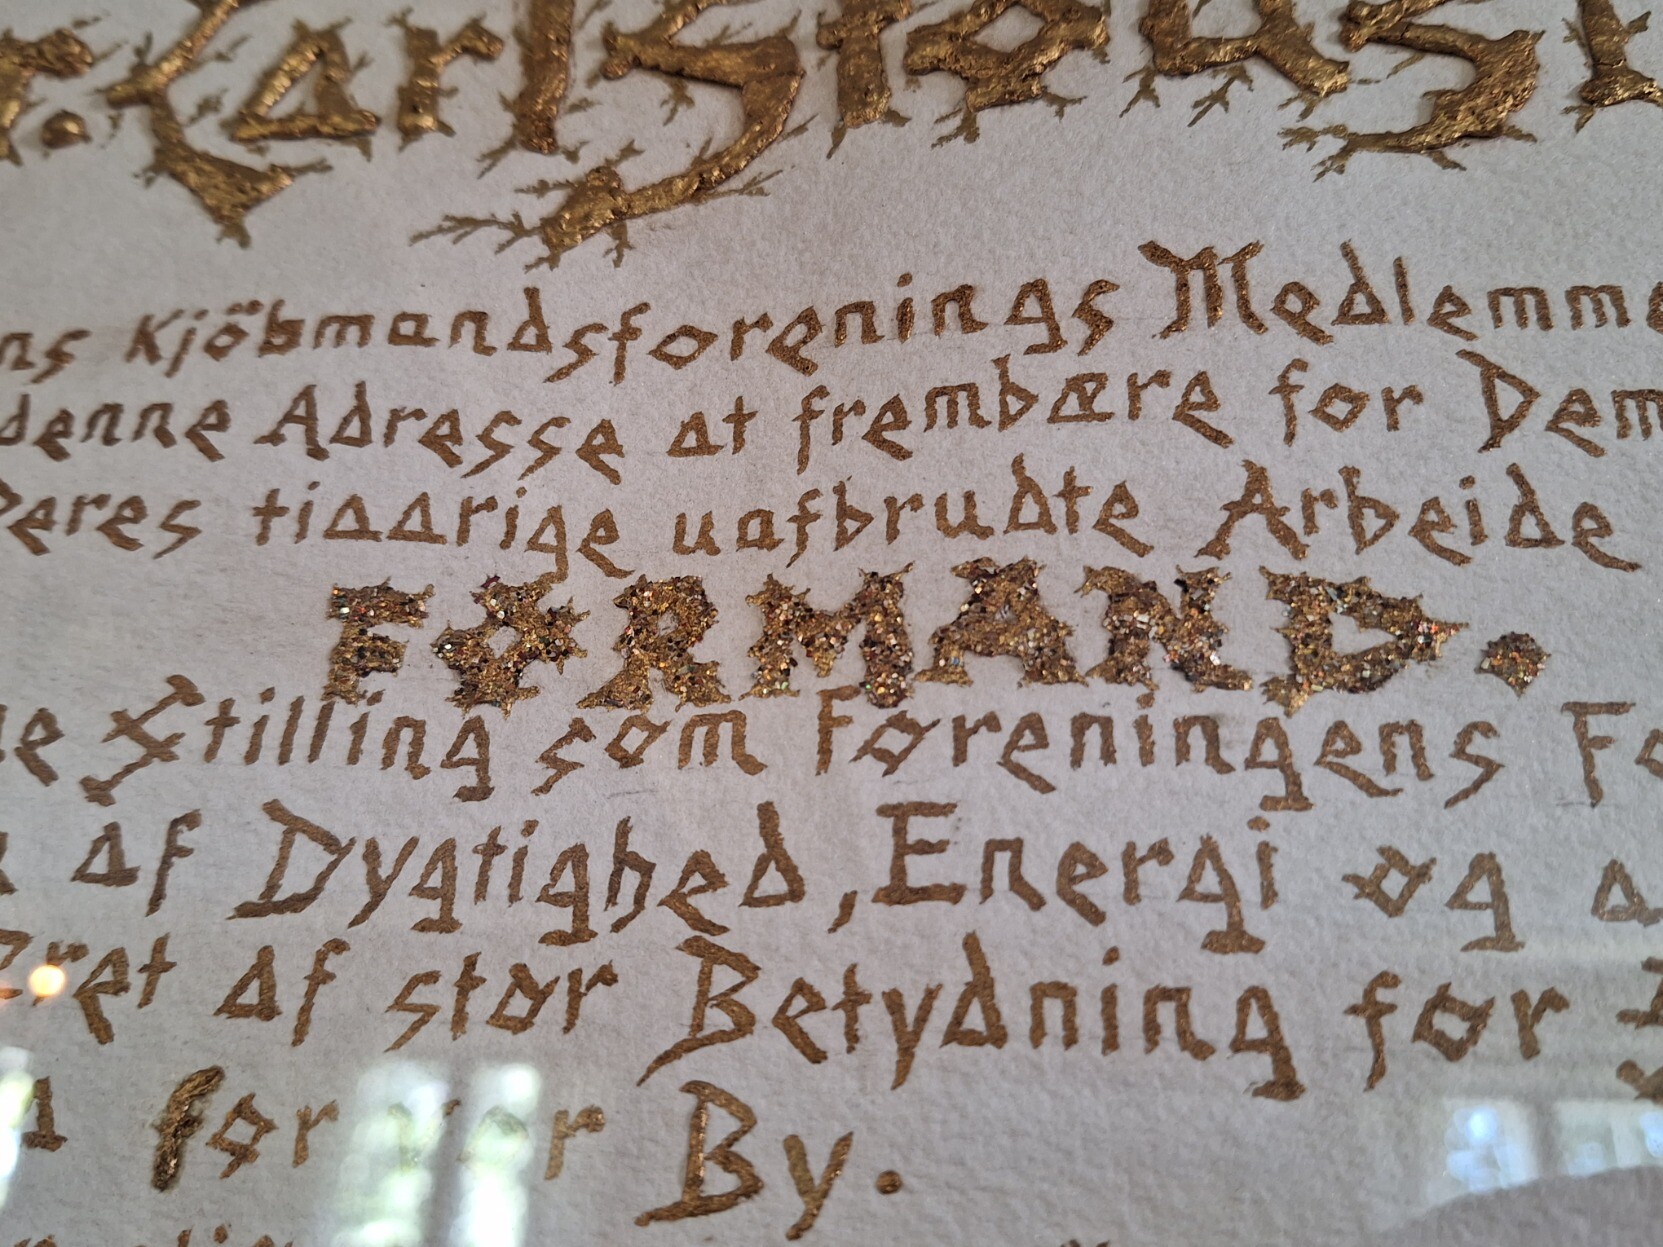 r. Carl
ns Kjöbmandsforenings Medlemme
denne Adresse at frembære for Dem
Deres tiaarige uafbrudte Arbeide
FORMAND.
Stilling som Foreningens Fo
af Dygtighed, Energi og a
ret af stor Betydning for
for vor By.